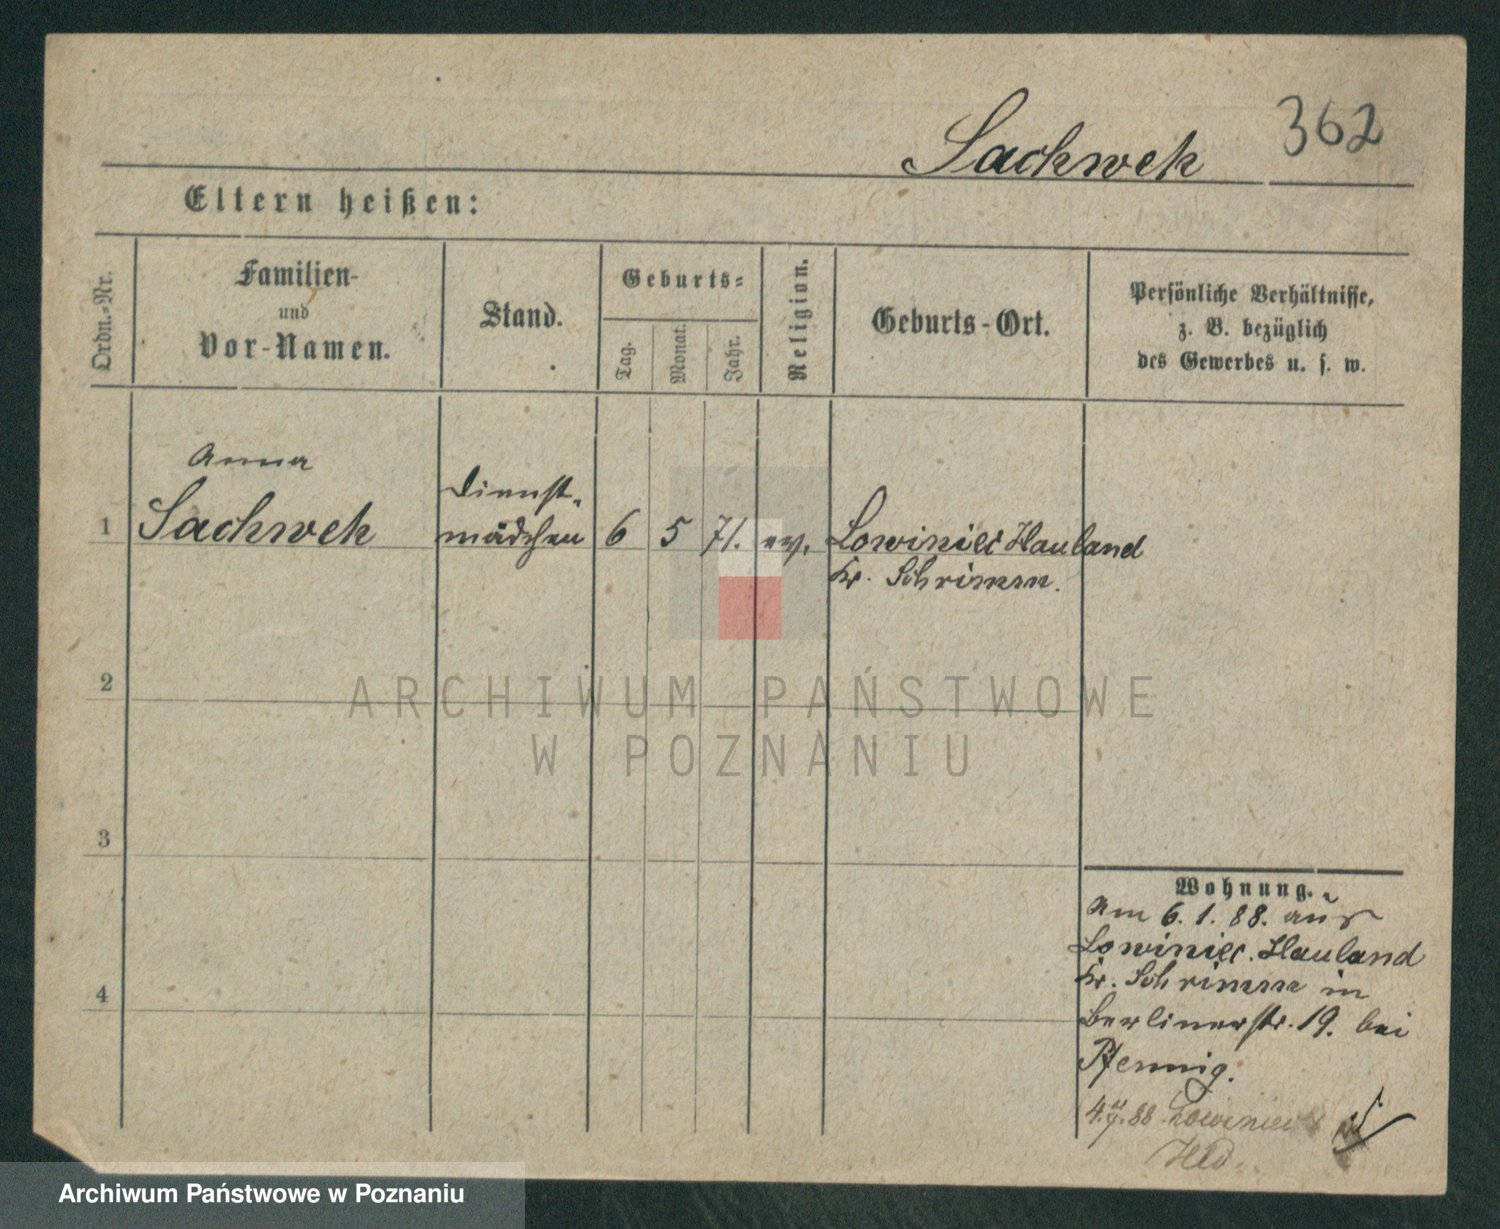 Sachweh 362
Eltern heißen:
Ordn.-Nr.
Familien-
und
Vor-Namen.
Stand.
Geburts-
Tag.
Monat.
Jahr.
Religion.
Geburts-Ort.
Persönliche Verhältnisse,
z. B. bezüglich
des Gewerbes u. s. w.
Anna
1 Sachweh
Dienst-
mädchen
6 5 71. ev.
Lowiniec Hauland
Kr. Schrimm.
2
3
4
ARCHIWUM PAŃSTWOWE
W POZNANIU
Wohnung.
Am 6.1.88. aus
Lowiniec. Hauland
Kr. Schrimm in
Berlinerstr. 19. bei
Pfennig.
88 Lowiniec
Hld.
Archiwum Państwowe w Poznaniu